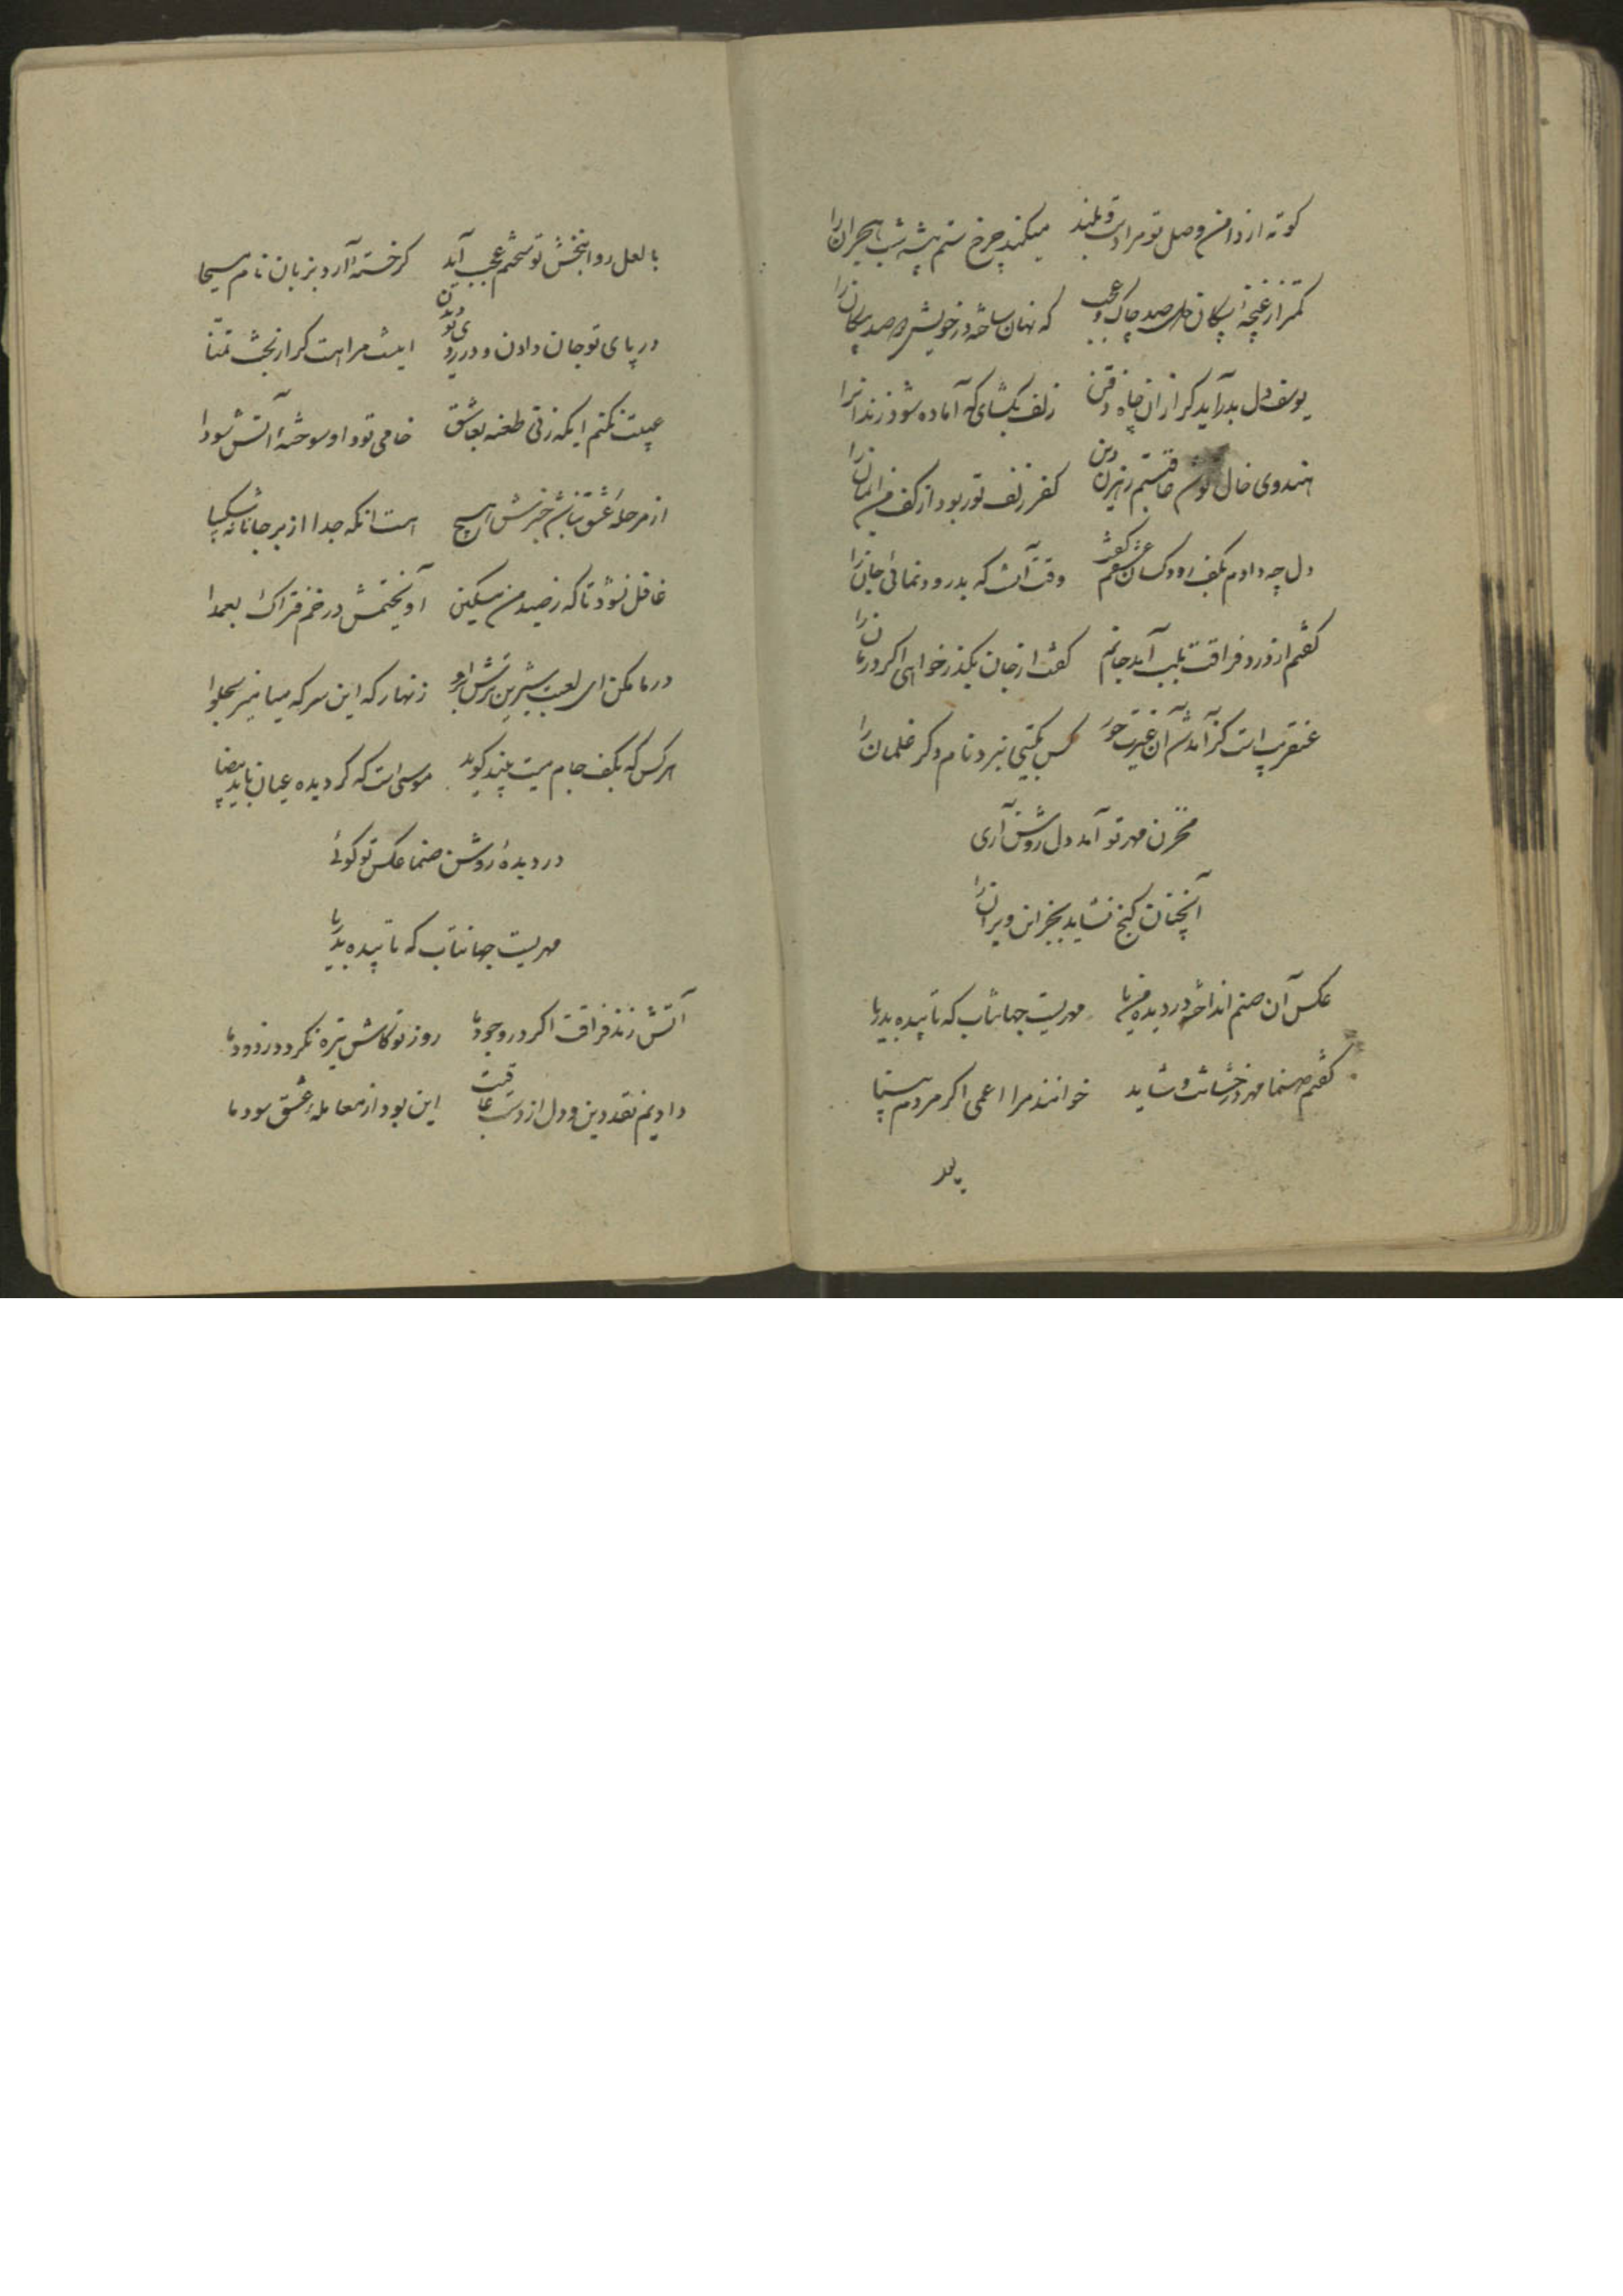 کوته از دامن وصل تو مرا دست و بلند میکند چرخ ستم پیشه شب هجران را
کمتر از غنچهٔ پیکان دل صد چاک و عجب که نهان ساخته در خویش صد پیکان را
یوسف دل بدر آید کر از ان چاه ذقن زلف بکشای که آماده شود زندانرا
هندوی خال تواش رهزن دین کفر زلف تو ربود از کف من ایمان را
دل چه دادم بکف رود کسان عشقش کفت وقت آنست که بدرود نمائی جان را
کفتم از درد فراقت بلب آمد جانم کفت از جان بکذر خواهی اکر درمان را
عنقریب است کز آمد شد آن غیرت حور کس بکیتی نبرد نام دکر غلمان را
مخزن مهر تو آمد دل روشن آری
آنچنان کنج نشاید بجز این ویران را
عکس آن صنم انداخته در دیده من یا مهریست جهانتاب که تابیده بدریا
کفتم صنما مهر درخشانت و شاید خوانند مرا اعمی اکر مردم بینا
با لعل روانبخش تو سختم عجب آید کر خسته آرد بزبان نام مسیحا
در پای تو جان دادن و در روی تو دیدن اینست مرا هست کر از بخت تمنا
عیبت نکنم ایکه زنی طعنه بعاشق خامی تو و او سوخته آتش سودا
از مرحلهٔ عشق نباشد خبرش هیچ هست انکه جدا از بر جانانه شکیبا
غافل نشود تا که ز صید من مسکین آویختمش در خم فتراک بعمدا
در ما مکن ای لعبت شیرین ترش ابرو زنهار که این سرکه میامیز بحلوا
هر کس که بکف جام میت بیند کوید موسی است که کردیده عیان با ید بیضا
در دیدهٔ روشن صنما عکس تو کوئی
مهریست جهانتاب که تابیده بدریا
آتش زند فراقت اکر در وجود ما روز تو کاش تیره نکردد ز دود ما
دادیم نقد دین و دل از دست عاقبت این بود از معاملهٔ عشق سود ما